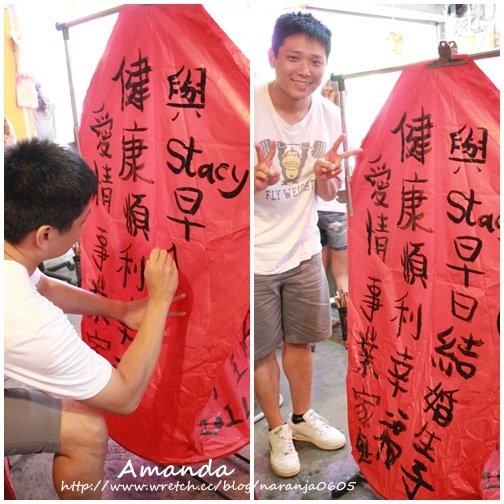 與 Stacy 早
健康順利幸
愛情 事業家
與 Stacy 早日結婚生子
健康順利幸福
愛情 事業家
FLY WEIGHT
Amanda
http://www.wretch.cc/blog/naranja0605